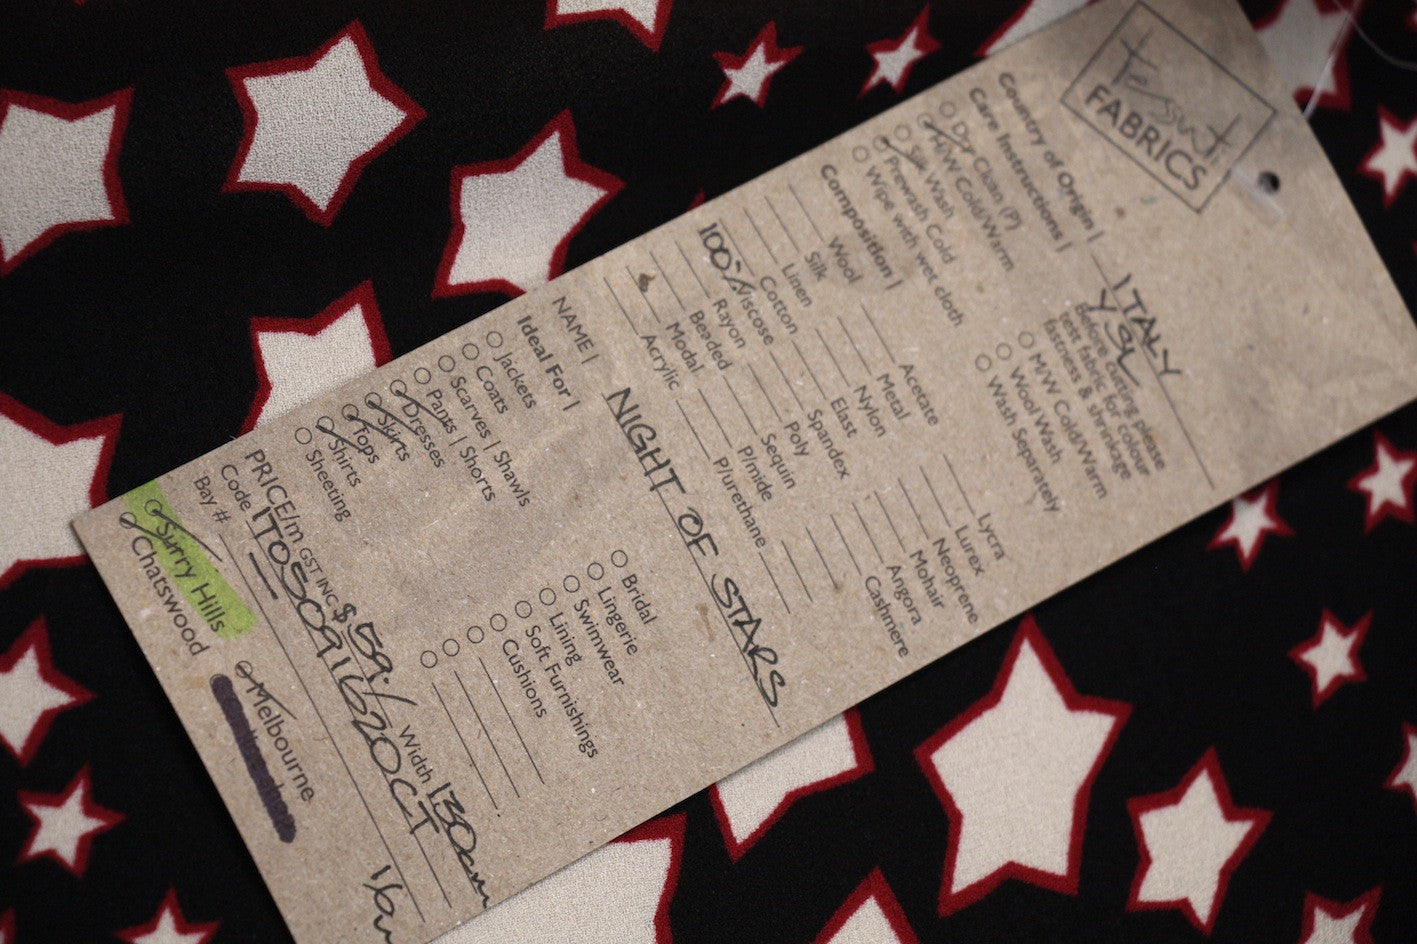 Tessuti
FABRICS
Country of Origin | ITALY
YSL
Care Instructions |
before cutting please
test fabric for colour
fastness & shrinkage
Dry Clean (P)
H/W Cold/Warm
Silk Wash
Prewash Cold
Wipe with wet cloth
M/W Cold/Warm
Wool Wash
Wash Separately
Composition |
Wool
Silk
Linen
Cotton
100% Viscose
Rayon
Beaded
Modal
Acrylic
Acetate
Metal
Nylon
Elast
Spandex
Poly
Sequin
P/mide
P/urethane
Lycra
Lurex
Neoprene
Mohair
Angora
Cashmere
NAME | NIGHT OF STARS
Ideal For |
Jackets
Coats
Scarves | Shawls
Pants | Shorts
Dresses
Skirts
Tops
Shirts
Sheeting
Bridal
Lingerie
Swimwear
Lining
Soft Furnishings
Cushions
PRICE/m GST INC $59./ Width 130cm
Code ITO5091620CT
Bay #
Surry Hills
Chatswood
Melbourne